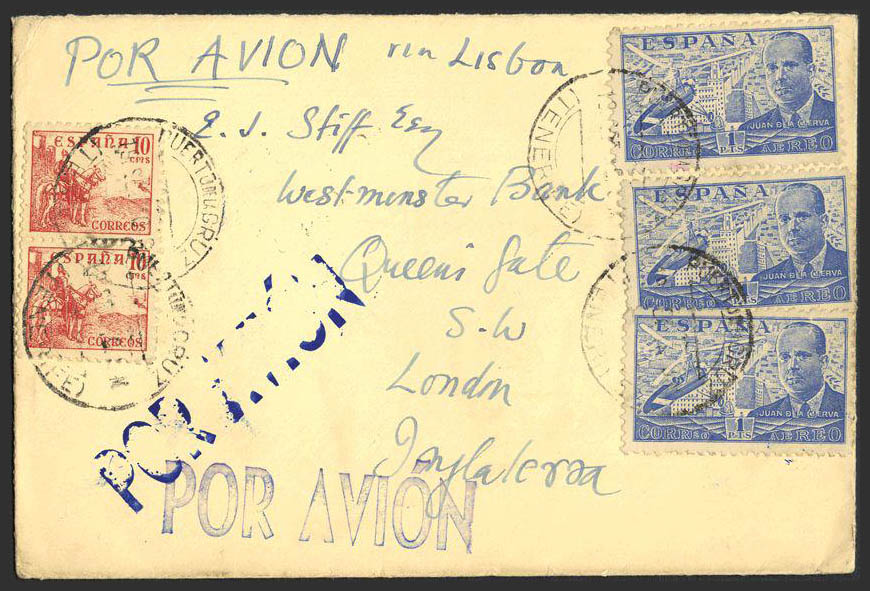 POR AVION via Lisbon
E. J. Stiff Esq
Westminster Bank
Queens Gate
S.W
London
Inglaterra
POR AVIÓN
POR AVIÓN
ESPAÑA 10
CTS
CORREOS
ESPAÑA 10
CTS
CORREOS
PUERTO DE LA CRUZ
ESPAÑA
JUAN DE LA CIERVA
CORREO 1 PTS AEREO
ESPAÑA
JUAN DE LA CIERVA
CORREO 1 PTS AEREO
ESPAÑA
JUAN DE LA CIERVA
CORREO 1 PTS AEREO
(TENERIFE)